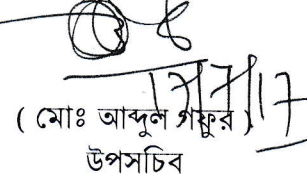 ( মোঃ আব্দুল গফুর )
উপসচিব